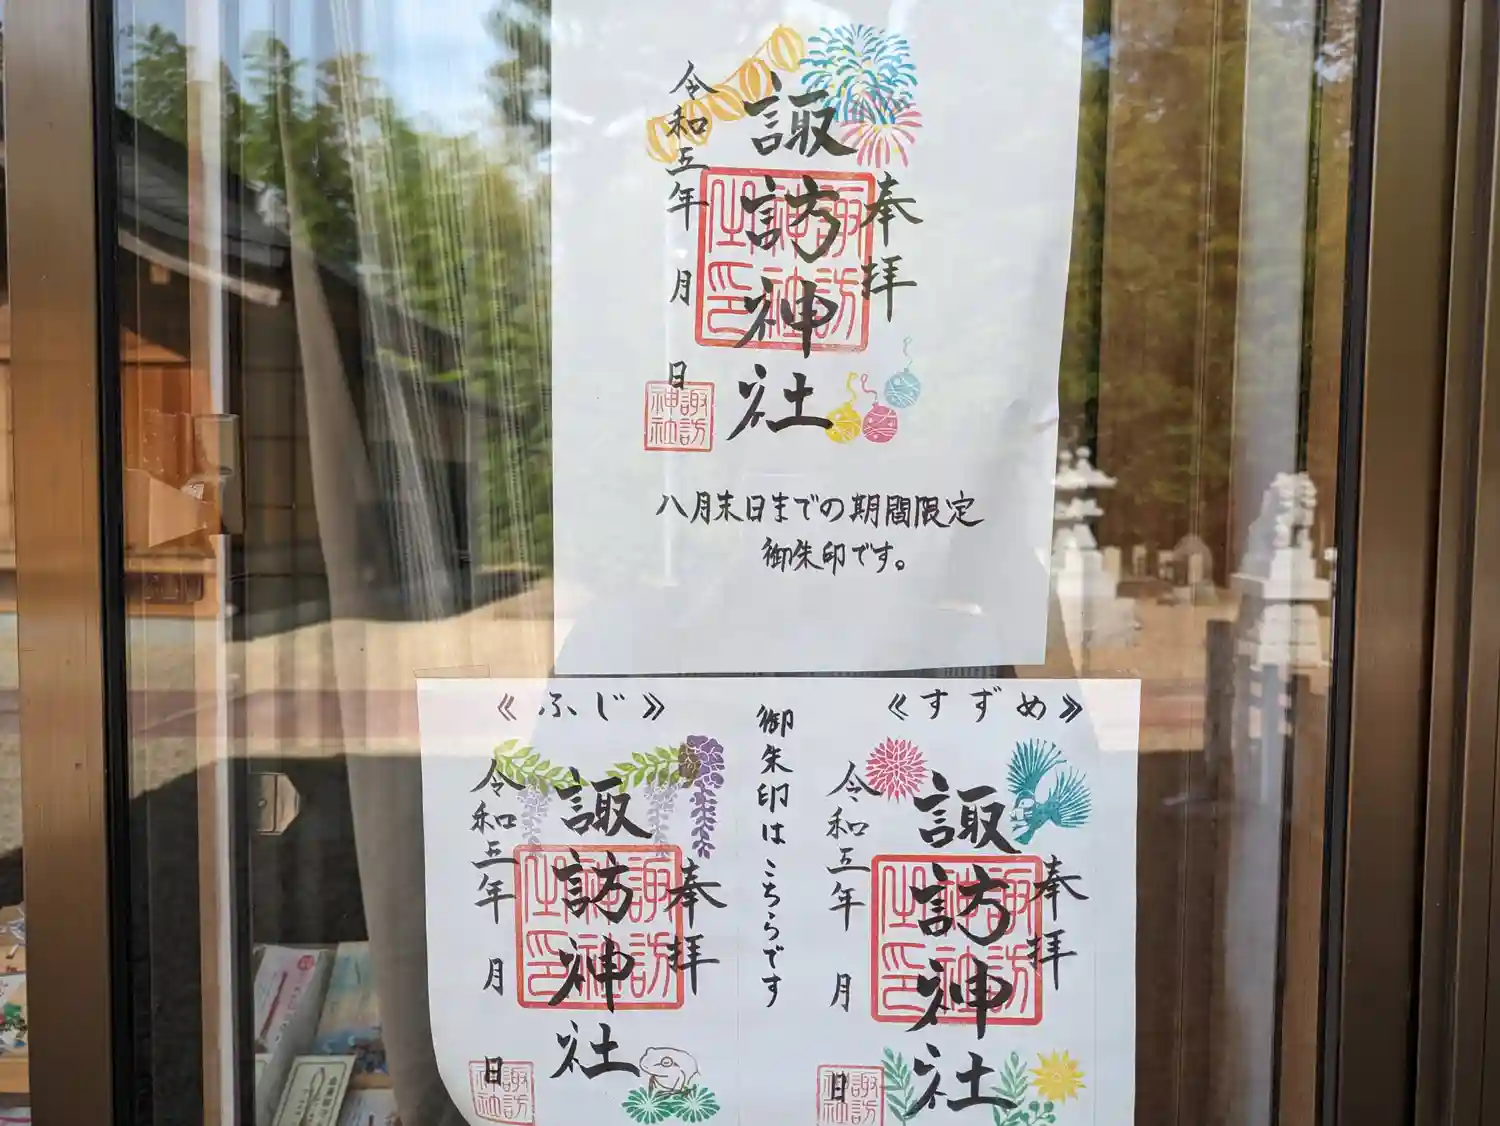 奉拝
諏訪神社
諏訪神社之印
令和五年 月 日
諏訪神社
八月末日までの期間限定
御朱印です。
《ふじ》
奉拝
諏訪神社
諏訪神社之印
令和五年 月 日
諏訪神社
御朱印はこちらです
《すずめ》
奉拝
諏訪神社
諏訪神社之印
令和五年 月 日
諏訪神社